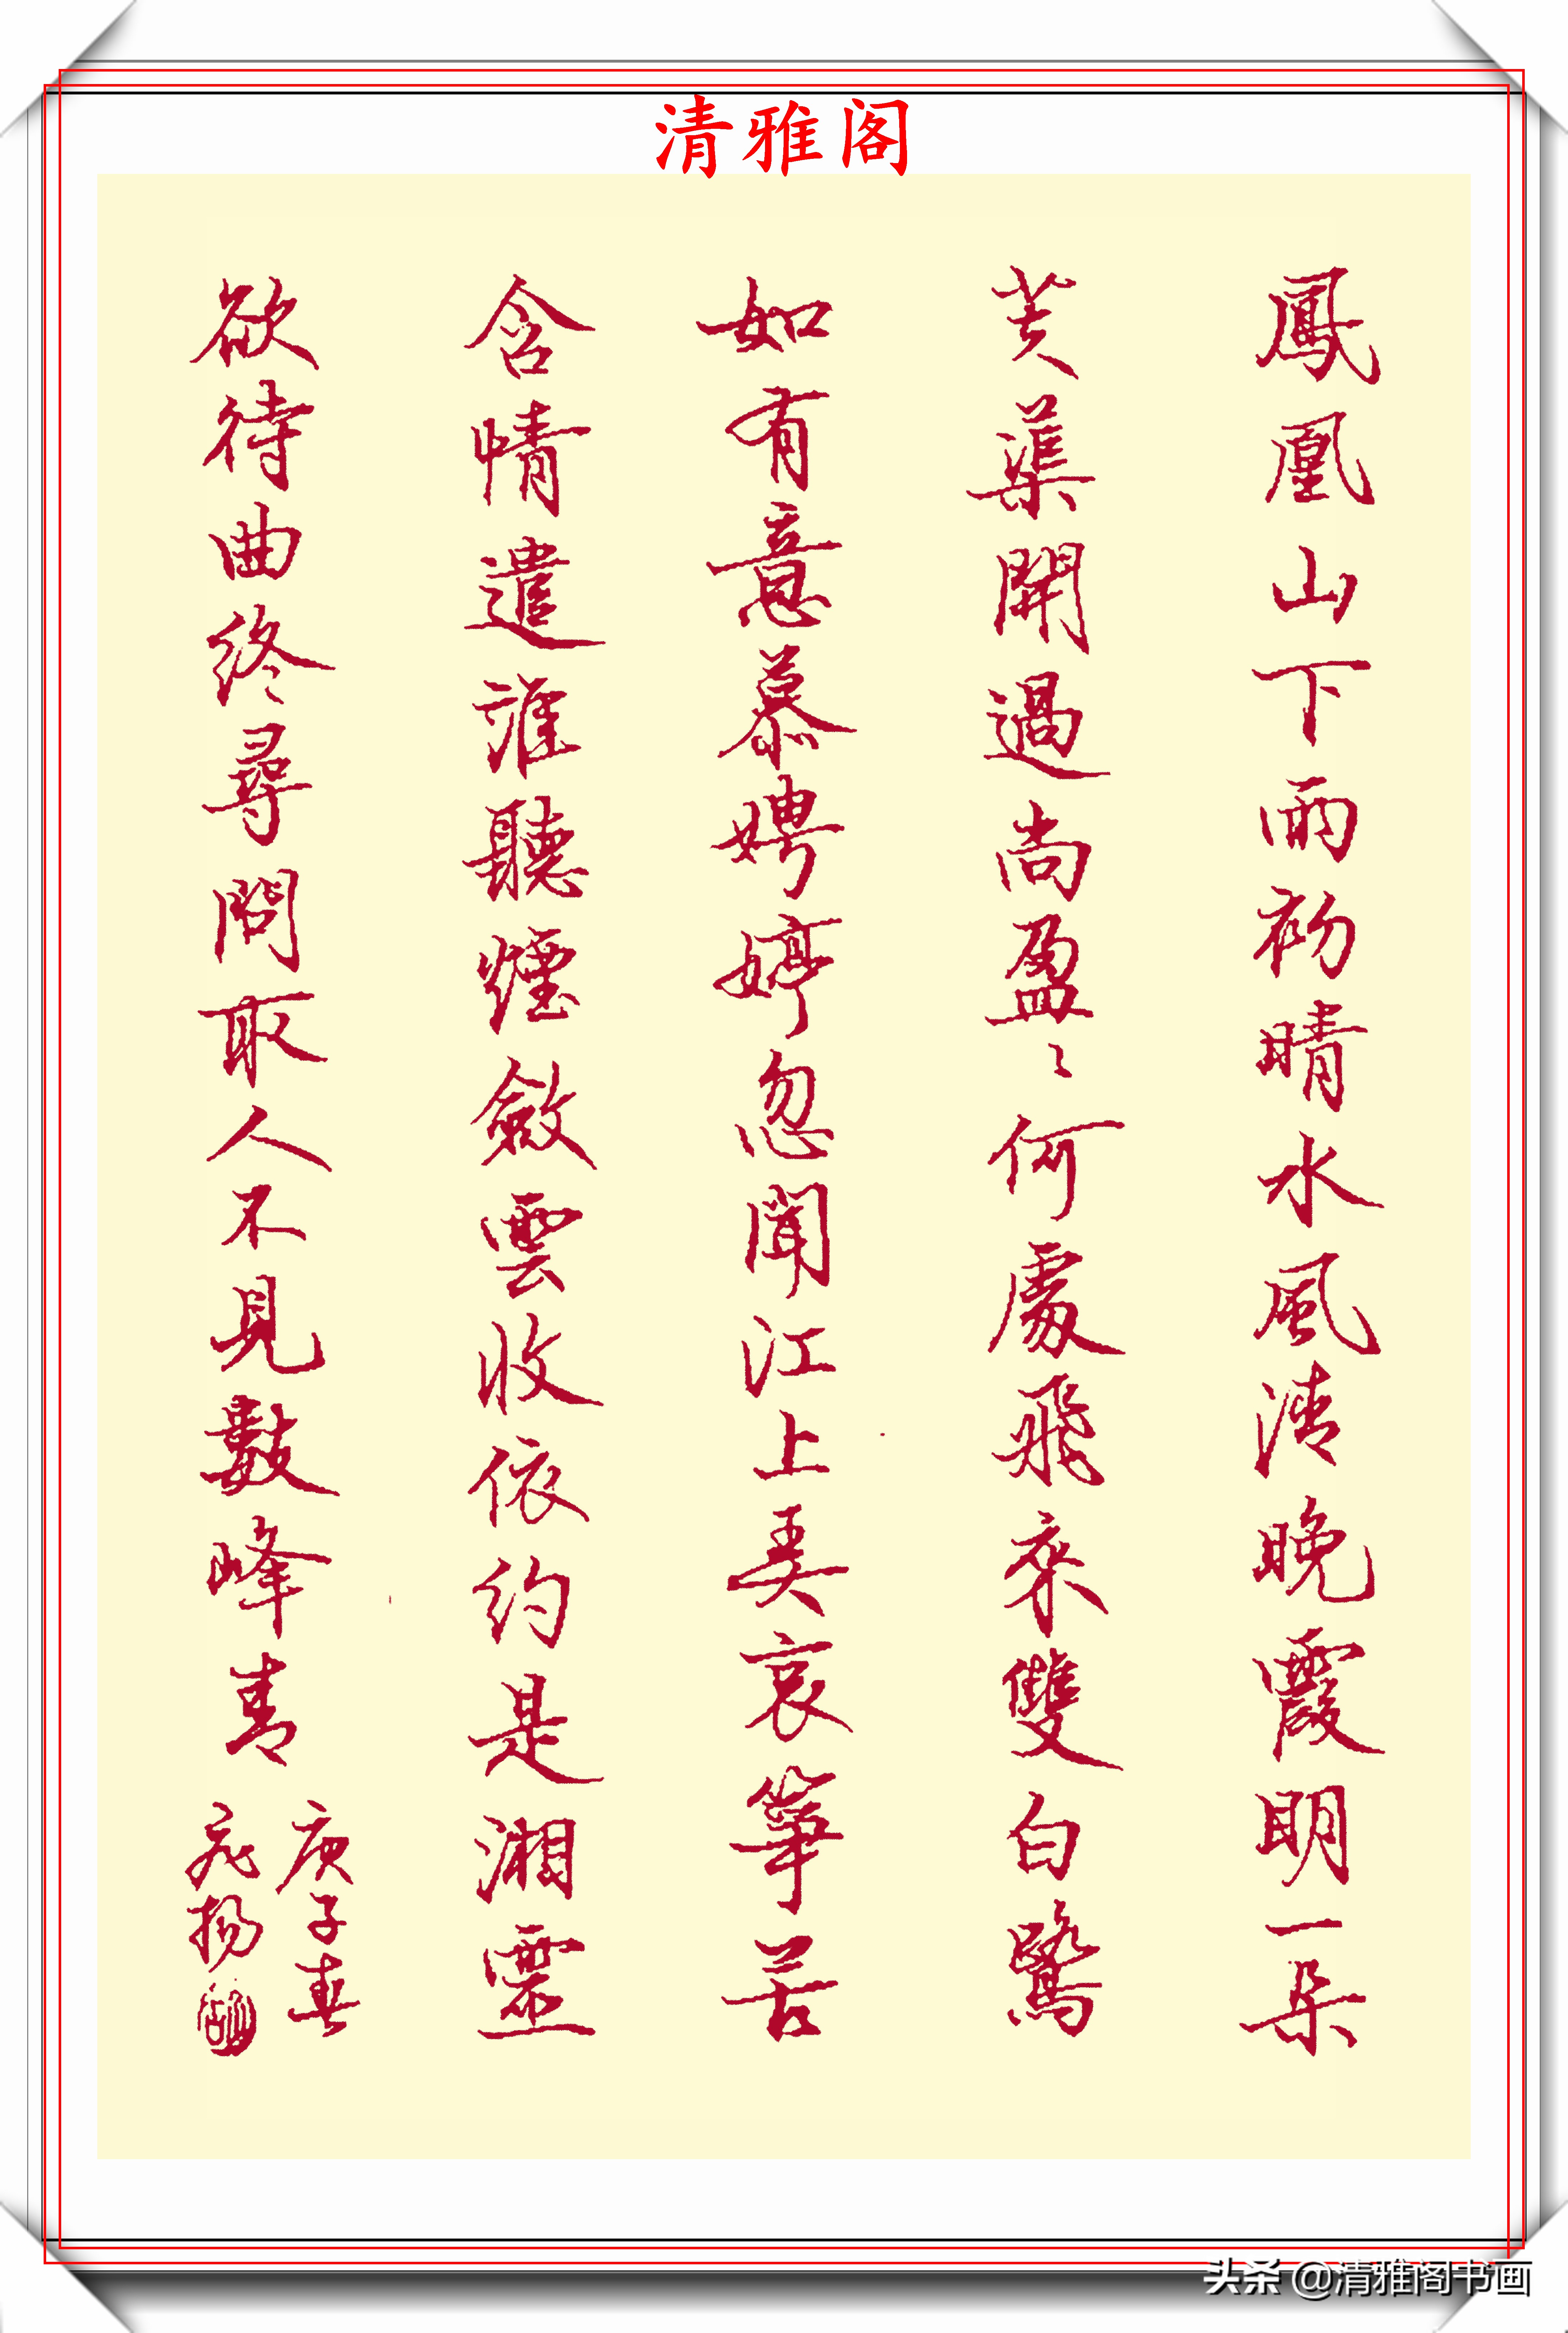 清雅阁
鳳凰山下雨初晴水風清晚霞明一朵
芙蕖開過尚盈〻何處飛來雙白鷺
如有意慕娉婷忽聞江上弄哀箏苦
含情遣誰聽煙斂雲收依約是湘靈
欲待曲終尋問取人不見數峰青
庚子春
飛揚
头条 @清雅阁书画